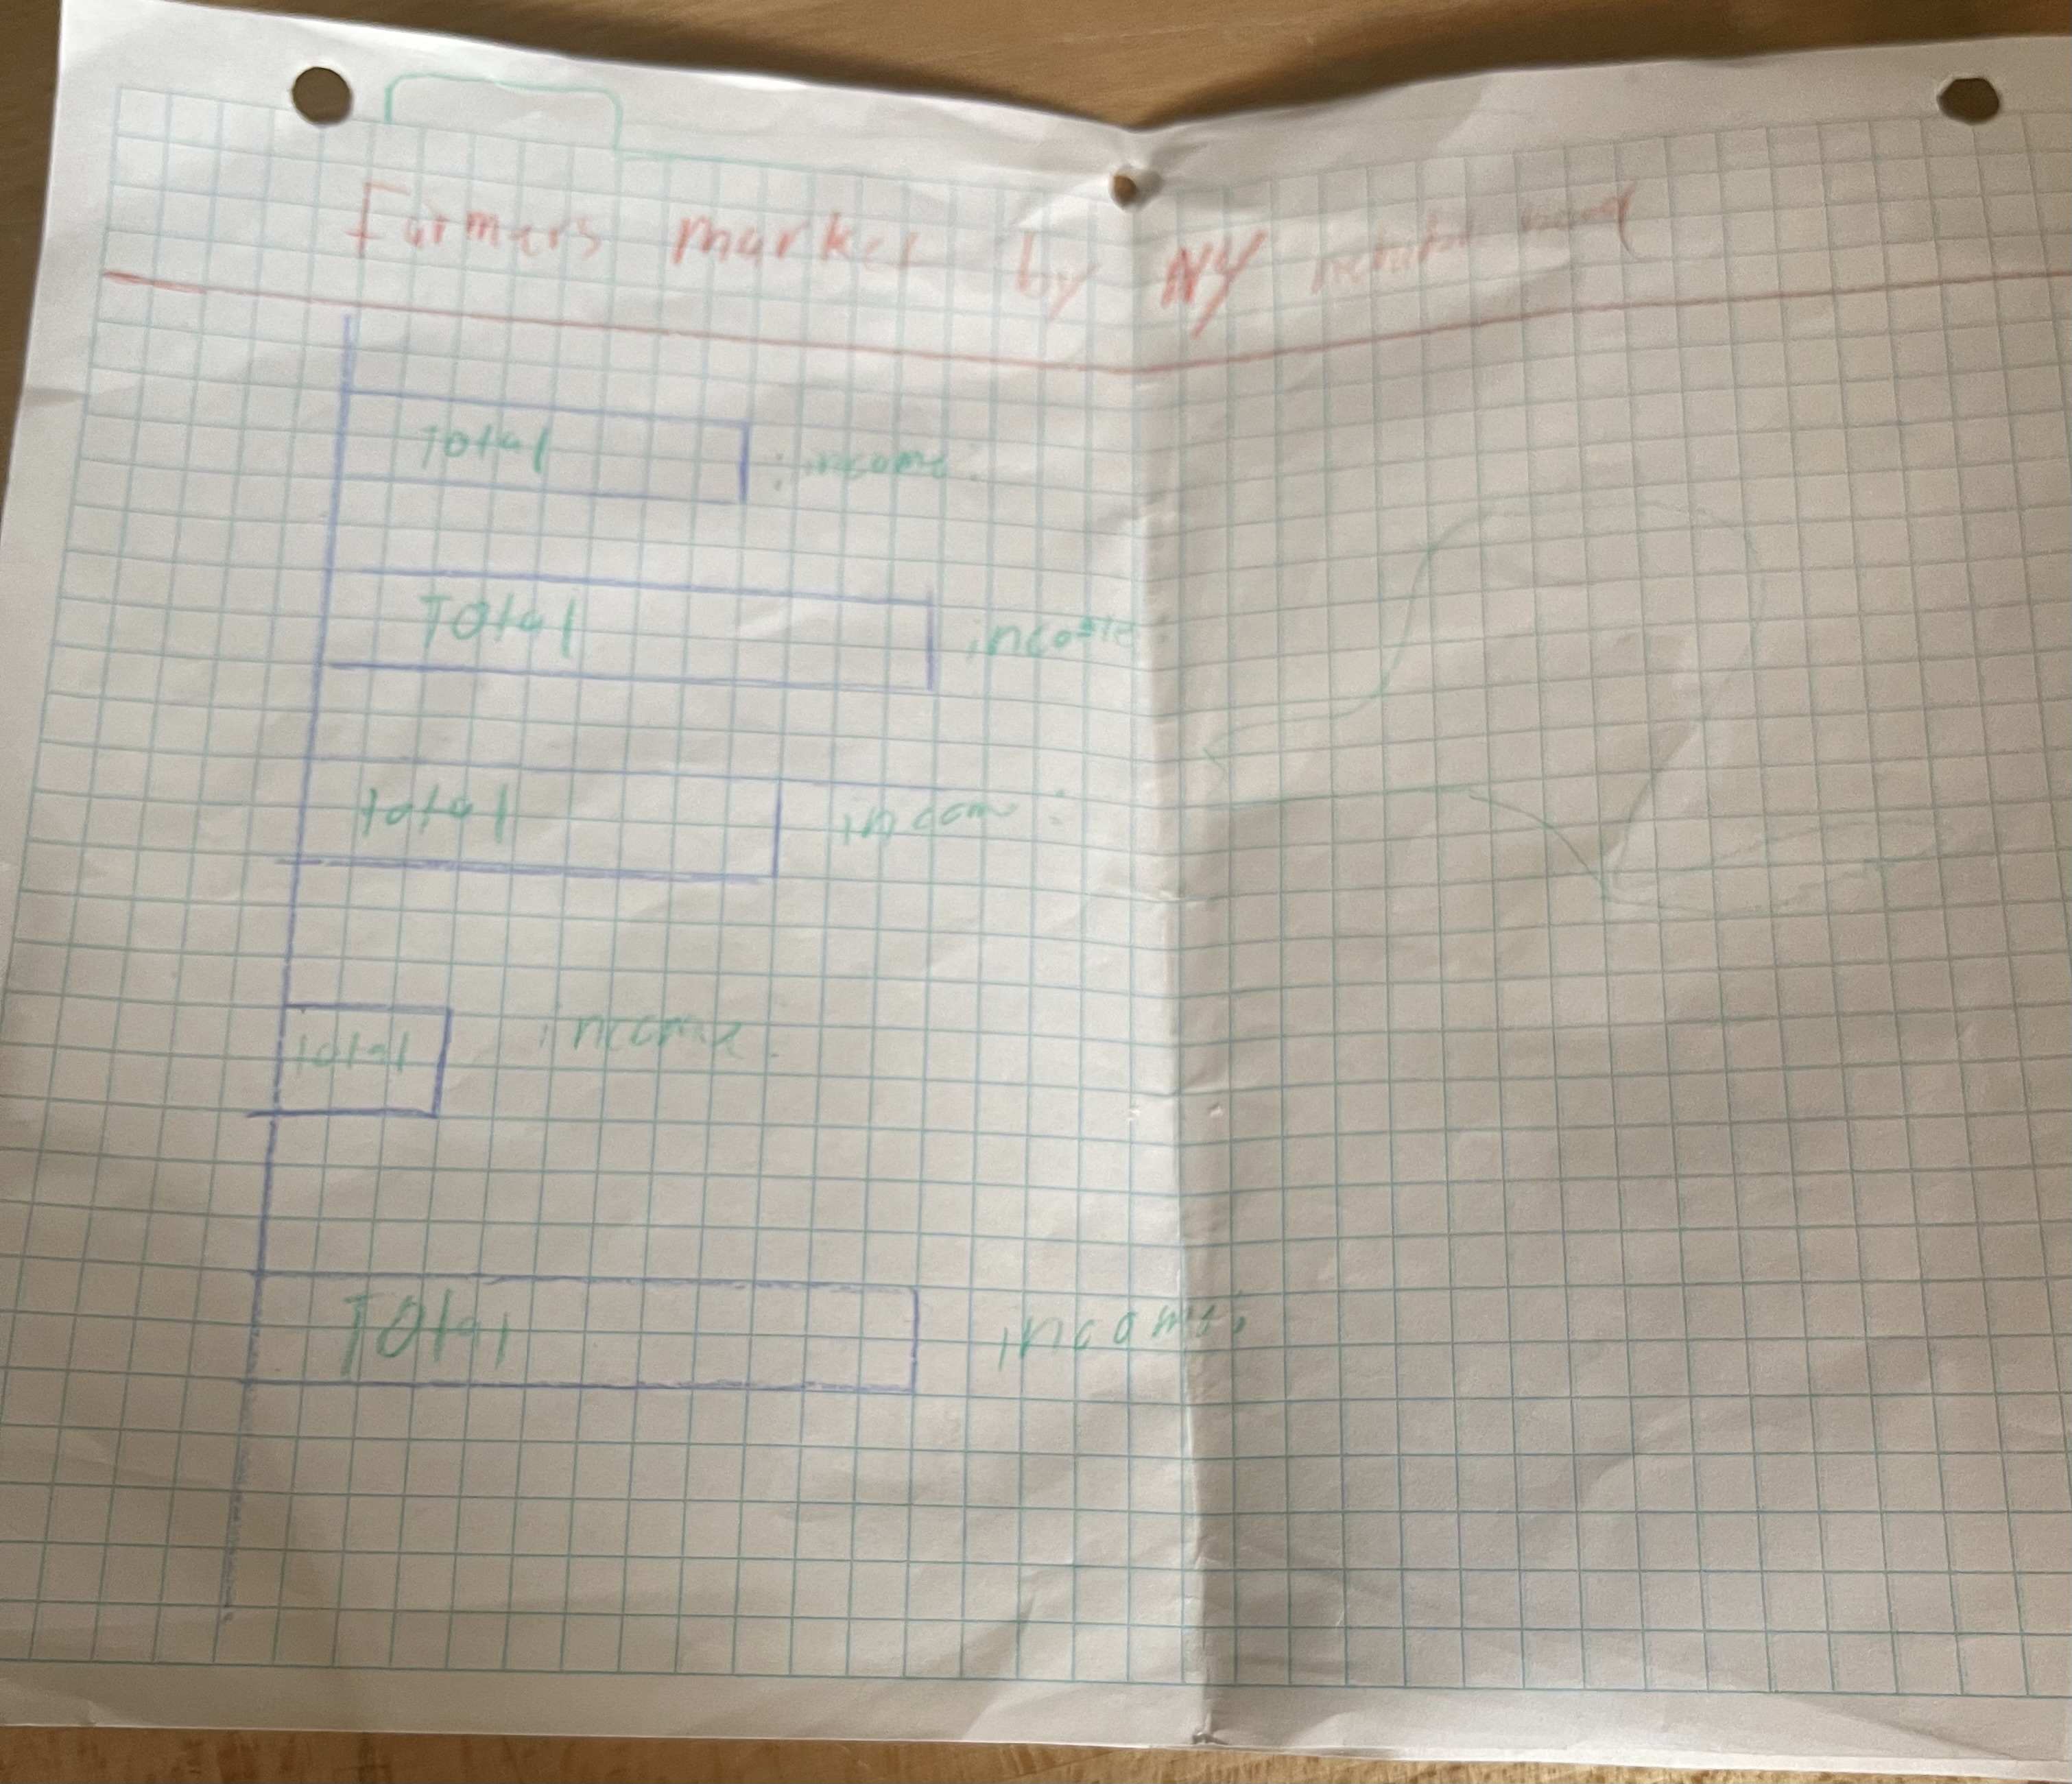 Farmers market by NY
Total : income:
Total income:
total incom :
total income:
Total income: